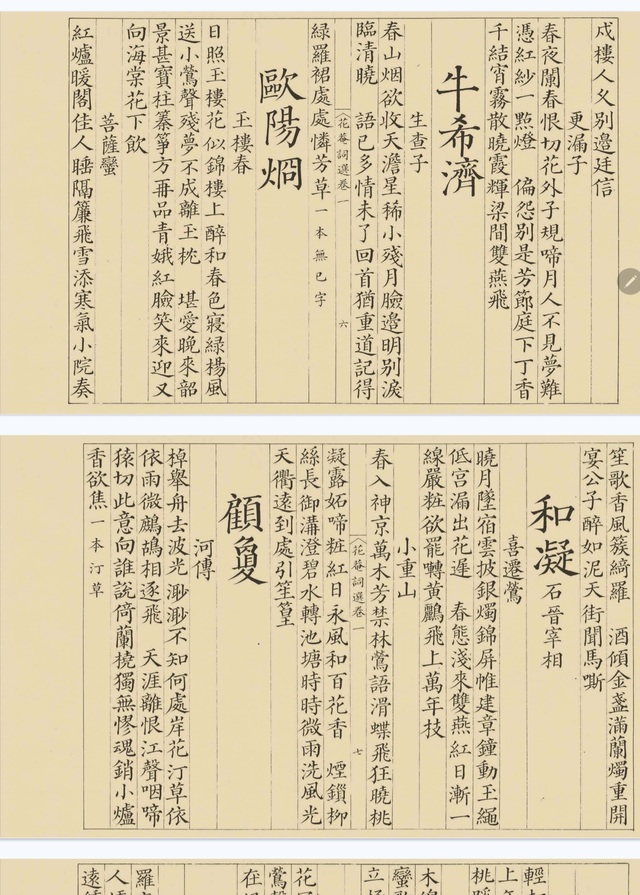 戍樓人夂別邉廷信
更漏子
春夜闌春恨切花外子規啼月人不見夢難
憑紅紗一點燈　偏怨別是芳節庭下丁香
千結宵霧散曉霞輝梁間雙燕飛
牛希濟
生查子
春山烟欲收天澹星稀小殘月臉邉明別淚
臨清曉　語已多情未了回首猶重道記得
花菴詞選卷一　六
綠羅裙處處憐芳草一本無已字
歐陽烱
玉樓春
日照玉樓花似錦樓上醉和春色寢綠楊風
送小鶯聲殘夢不成離玉枕　堪愛晚來韶
景甚寶柱秦箏方再品青娥紅臉笑來迎又
向海棠花下飲
菩薩蠻
紅爐暖閣佳人睡隔簾飛雪添寒氣小院奏
笙歌香風簇綺羅　酒傾金盞滿蘭燭重開
宴公子醉如泥天街聞馬嘶
和凝石晉宰相
喜遷鶯
曉月墜宿雲披銀燭錦屏帷建章鐘動玉繩
低宮漏出花遲　春態淺來雙燕紅日漸一
線嚴粧欲罷囀黄鸝飛上萬年枝
小重山
春入神京萬木芳禁林鶯語滑蝶飛狂曉桃
花菴詞選卷一　七
凝露妬啼粧紅日永風和百花香　煙鎖栁
絲長御溝澄碧水轉池塘時時微雨洗風光
天衢遠到處引笙篁
顧敻
河傳
棹舉舟去波光渺渺不知何處岸花汀草依
依雨微鷓鴣相逐飛　天涯離恨江聲咽啼
猿切此意向誰說倚蘭橈獨無憀魂銷小爐
香欲焦一本汀草